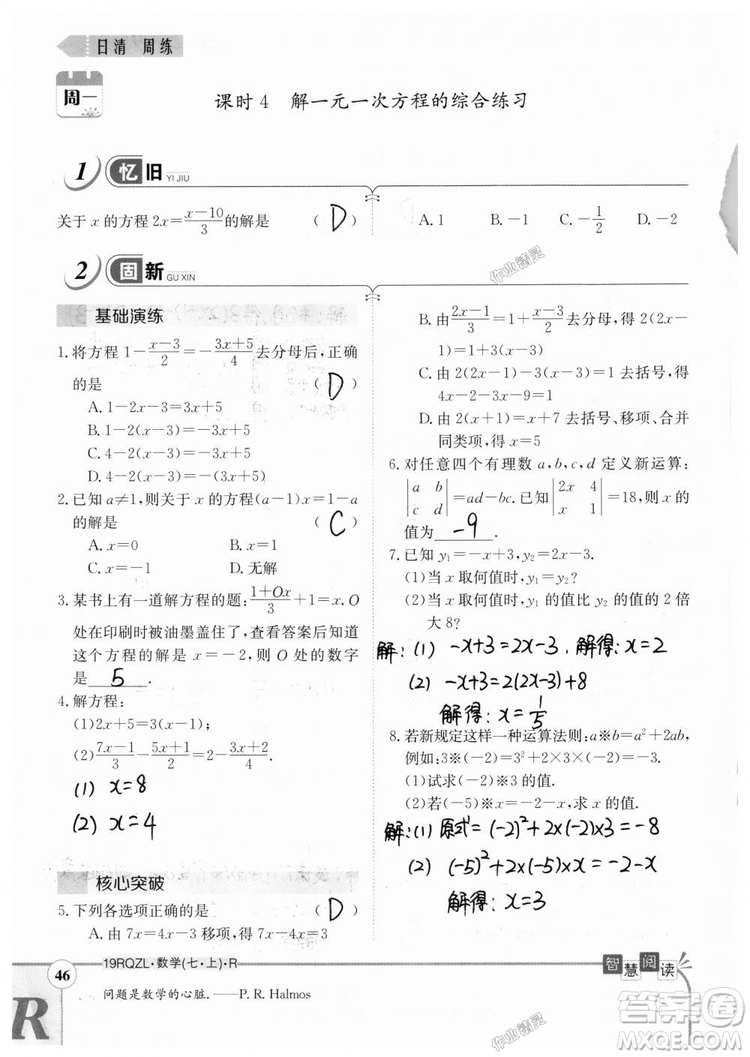 日清 周练
周一
课时4 解一元一次方程的综合练习
1 忆旧 YI JIU
关于x的方程2x=\frac{x-10}{3}的解是 ( D ) A. 1 B. -1 C. -\frac{1}{2} D. -2
2 固新 GU XIN
基础演练
1. 将方程1-\frac{x-3}{2}=-\frac{3x+5}{4}去分母后,正确
的是 ( D )
A. 1-2x-3=3x+5
B. 1-2(x-3)=-3x+5
C. 4-2(x-3)=-3x+5
D. 4-2(x-3)=-(3x+5)
2. 已知a≠1,则关于x的方程(a-1)x=1-a
的解是 ( C )
A. x=0 B. x=1
C. x=-1 D. 无解
3. 某书上有一道解方程的题:\frac{1+Ox}{3}+1=x,O
处在印刷时被油墨盖住了,查看答案后知道
这个方程的解是x=-2,则O处的数字
是 5 .
4. 解方程:
(1)2x+5=3(x-1);
(2)\frac{7x-1}{3}-\frac{5x+1}{2}=2-\frac{3x}{4}.
(1) x=8
(2) x=4
核心突破
5. 下列各选项正确的是 ( D )
A. 由7x=4x-3移项,得7x-4x=3
B. 由\frac{2x-1}{3}=1+\frac{x-3}{2}去分母,得2(2x-
1)=1+3(x-3)
C. 由2(2x-1)-3(x-3)=1去括号,得
4x-2-3x-9=1
D. 由2(x+1)=x+7去括号、移项、合并
同类项,得x=5
6. 对任意四个有理数a,b,c,d定义新运算:
|a b; c d|=ad-bc. 已知|2x 4; x 1|=18,则x的
值为 -9 .
7. 已知y₁=-x+3,y₂=2x-3.
(1)当x取何值时,y₁=y₂?
(2)当x取何值时,y₁的值比y₂的值的2倍
大8?
解:(1) -x+3=2x-3,解得:x=2
(2) -x+3=2(2x-3)+8
解得:x=\frac{1}{5}
8. 若新规定这样一种运算法则:a※b=a²+2ab.
例如:3※(-2)=3²+2×3×(-2)=-3.
(1)试求(-2)※3的值.
(2)若(-5)※x=-2-x,求x的值.
解:(1)原式=(-2)²+2×(-2)×3=-8
(2) (-5)²+2×(-5)×x=-2-x
解得:x=3
46 19RQZL·数学(七·上)·R
问题是数学的心脏.——P. R. Halmos
智慧阅读
R
作业精灵
作业精灵
答案圈
MXQE.COM